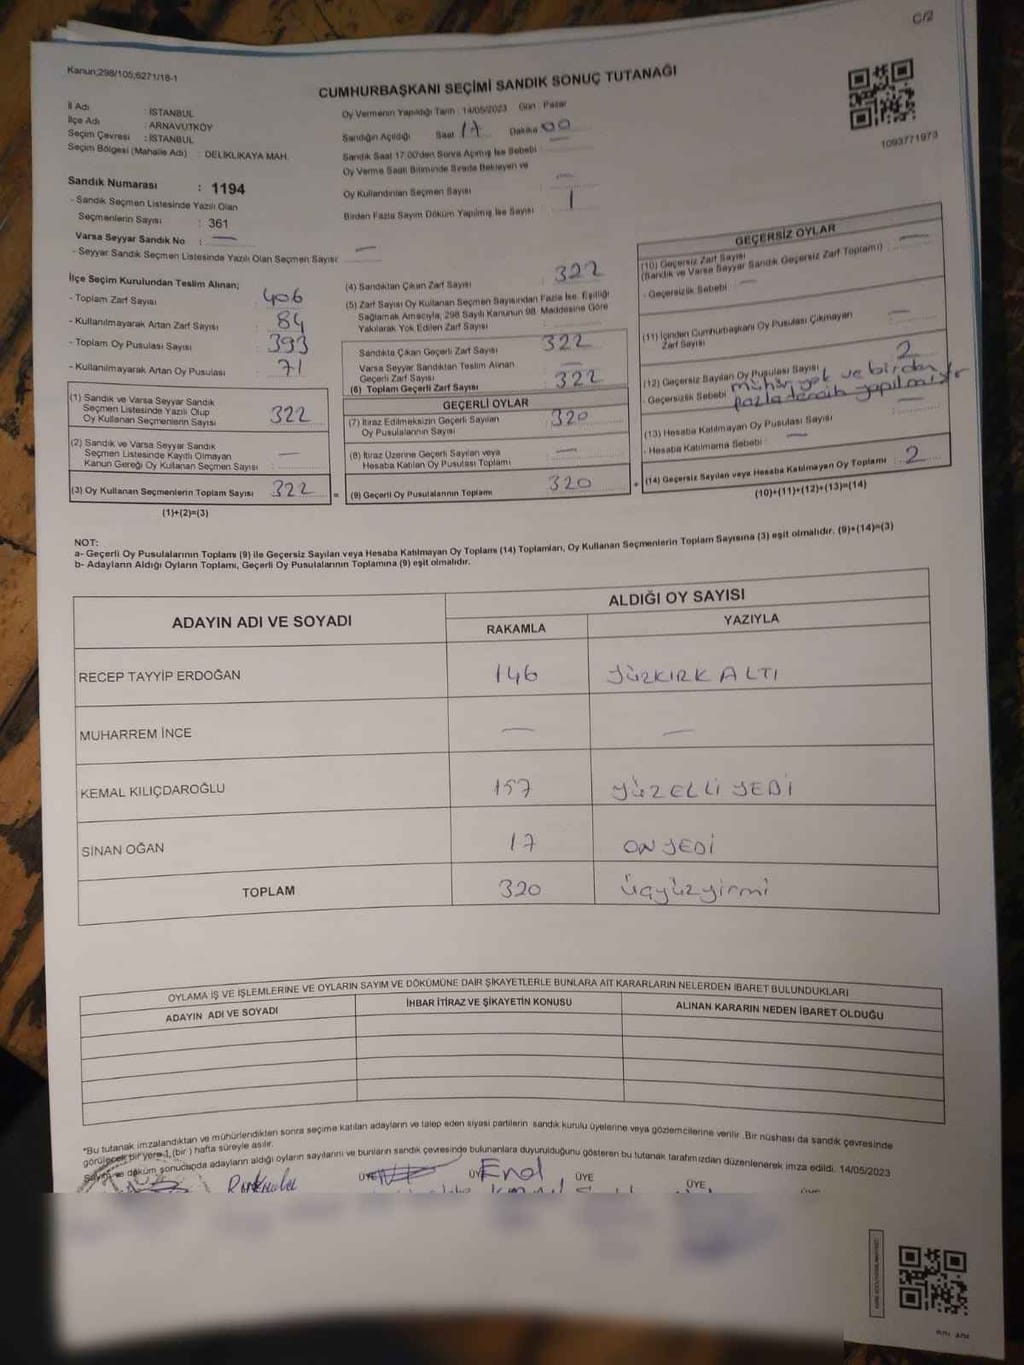 C/2
Kanun;298/105,6271/18-1
CUMHURBAŞKANI SEÇİMİ SANDIK SONUÇ TUTANAĞI
İl Adı : İSTANBUL
İlçe Adı : ARNAVUTKÖY
Seçim Çevresi : İSTANBUL
Seçim Bölgesi (Mahalle Adı) : DELİKLİKAYA MAH.
Oy Vermenin Yapıldığı Tarih : 14/05/2023 Gün : Pazar
Sandığın Açıldığı Saat 17 Dakika 00
Sandık Saat 17:00'den Sonra Açılmış İse Sebebi
Oy Verme Saati Bitiminde Sırada Bekleyen ve
Oy Kullandırılan Seçmen Sayısı : —
Birden Fazla Sayım Döküm Yapılmış İse Sayısı : 1
1093771973
Sandık Numarası : 1194
- Sandık Seçmen Listesinde Yazılı Olan
Seçmenlerin Sayısı : 361
Varsa Seyyar Sandık No : —
- Seyyar Sandık Seçmen Listesinde Yazılı Olan Seçmen Sayısı : —
İlçe Seçim Kurulundan Teslim Alınan;
- Toplam Zarf Sayısı : 406
- Kullanılmayarak Artan Zarf Sayısı : 84
- Toplam Oy Pusulası Sayısı : 393
- Kullanılmayarak Artan Oy Pusulası : 71
(1) Sandık ve Varsa Seyyar Sandık
Seçmen Listesinde Yazılı Olup
Oy Kullanan Seçmenlerin Sayısı : 322
(2) Sandık ve Varsa Seyyar Sandık
Seçmen Listesinde Kayıtlı Olmayan
Kanun Gereği Oy Kullanan Seçmen Sayısı : —
(3) Oy Kullanan Seçmenlerin Toplam Sayısı : 322
(1)+(2)=(3)
(4) Sandıktan Çıkan Zarf Sayısı : 322
(5) Zarf Sayısı Oy Kullanan Seçmen Sayısından Fazla İse, Eşitliği
Sağlamak Amacıyla; 298 Sayılı Kanunun 98. Maddesine Göre
Yakılarak Yok Edilen Zarf Sayısı
Sandıkta Çıkan Geçerli Zarf Sayısı : 322
Varsa Seyyar Sandıktan Teslim Alınan
Geçerli Zarf Sayısı : —
(6) Toplam Geçerli Zarf Sayısı : 322
GEÇERLİ OYLAR
(7) İtiraz Edilmeksizin Geçerli Sayılan
Oy Pusulalarının Sayısı : 320
(8) İtiraz Üzerine Geçerli Sayılan veya
Hesaba Katılan Oy Pusulası Toplamı : —
(9) Geçerli Oy Pusulalarının Toplamı : 320
=
+
GEÇERSİZ OYLAR
(10) Geçersiz Zarf Sayısı : —
(Sandık ve Varsa Seyyar Sandık Geçersiz Zarf Toplamı)
- Geçersizlik Sebebi : —
(11) İçinden Cumhurbaşkanı Oy Pusulası Çıkmayan
Zarf Sayısı : —
(12) Geçersiz Sayılan Oy Pusulası Sayısı : 2
- Geçersizlik Sebebi : mühür yok ve birden
fazla tercih yapılmıştır
(13) Hesaba Katılmayan Oy Pusulası Sayısı : —
- Hesaba Katılmama Sebebi : —
(14) Geçersiz Sayılan veya Hesaba Katılmayan Oy Toplamı : 2
(10)+(11)+(12)+(13)=(14)
NOT:
a- Geçerli Oy Pusulalarının Toplamı (9) ile Geçersiz Sayılan veya Hesaba Katılmayan Oy Toplamı (14) Toplamları, Oy Kullanan Seçmenlerin Toplam Sayısına (3) eşit olmalıdır. (9)+(14)=(3)
b- Adayların Aldığı Oyların Toplamı, Geçerli Oy Pusulalarının Toplamına (9) eşit olmalıdır.
ADAYIN ADI VE SOYADI
ALDIĞI OY SAYISI
RAKAMLA YAZIYLA
RECEP TAYYİP ERDOĞAN 146 YÜZKIRK ALTI
MUHARREM İNCE — —
KEMAL KILIÇDAROĞLU 157 YÜZELLİ YEDİ
SİNAN OĞAN 17 ON YEDİ
TOPLAM 320 üçyüzyirmi
OYLAMA İŞ VE İŞLEMLERİNE VE OYLARIN SAYIM VE DÖKÜMÜNE DAİR ŞİKAYETLERLE BUNLARA AİT KARARLARIN NELERDEN İBARET BULUNDUKLARI
ADAYIN ADI VE SOYADI İHBAR İTİRAZ VE ŞİKAYETİN KONUSU ALINAN KARARIN NEDEN İBARET OLDUĞU
*Bu tutanak imzalandıktan ve mühürlendikten sonra seçime katılan adayların ve talep eden siyasi partilerin sandık kurulu üyelerine veya gözlemcilerine verilir. Bir nüshası da sandık çevresinde
görülecek bir yere 1 (bir) hafta süreyle asılır.
Sayım ve döküm sonucunda adayların aldığı oyların sayılarını ve bunların sandık çevresinde bulunanlara duyurulduğunu gösteren bu tutanak tarafımızdan düzenlenerek imza edildi. 14/05/2023
ÜYE ÜYE ÜYE ÜYE